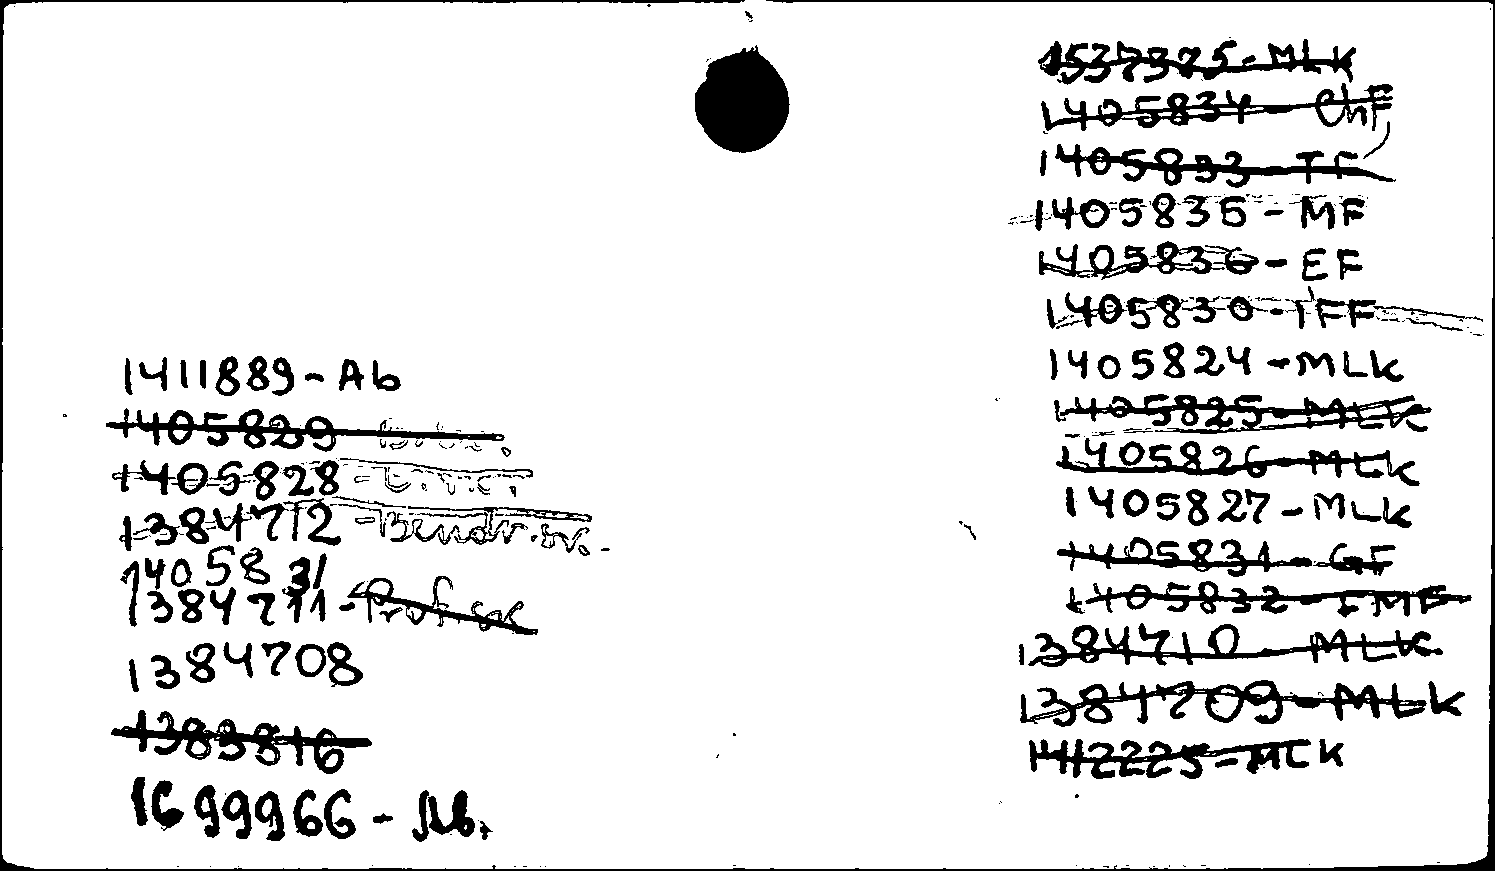 1411889 - Ab
1405829
1405828 -
1384712 - Bendr. sr.
1405831
1384711 - Prof sk
1384708
1383816
1699966 - Ab.
1537375 - MLK
1405834 - ChF
1405833 - TF
1405835 - MF
1405836 - EF
1405830 - IFF
1405824 - MLK
1405825 - MLK
1405826 - MLK
1405827 - MLK
1405831 - GF
1405832 - FMF
1384710 - MLK
1384709 - MLK
1412225 - MLK